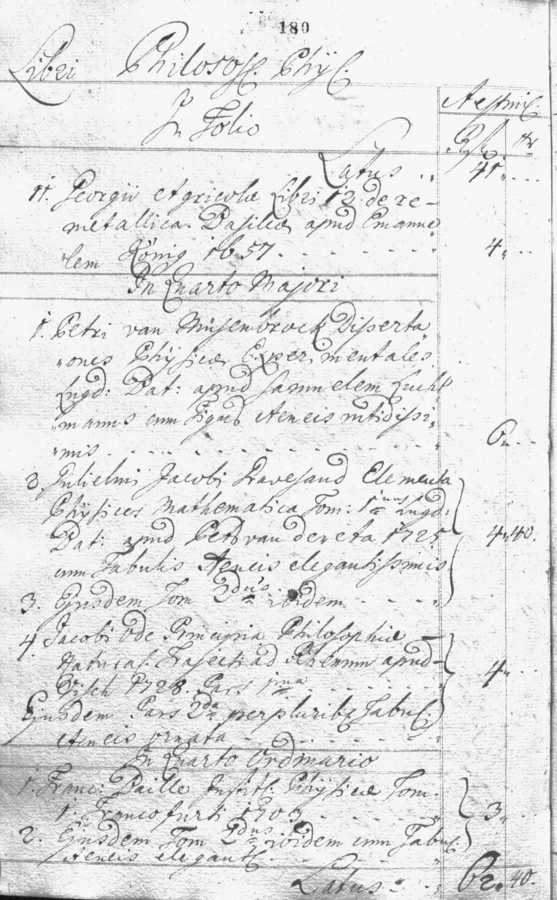 180
Libri Philosof. Phÿs.
Aestim.
In Folio
Rf xr
Latus 41
11. Georgii Agricolæ Libri 12 de re
metallica. Basileæ apud Emanue
lem König 1657. 4
In Quarto Majori
1. Petri van Musenbrock Disserta
ones Phÿsicæ Experimentales
Lugd: Bat: apud Samuelem Lucht
manns cum Figuris Aeneis nitidissi
mis.
2. Gulielmi Jacobi Gravesand Elementa
Phÿsices Mathematica Tom: 1mus Lugd:
Bat: apud Petr van der Aa 1725 4 40.
cum Tabulis Aeneis elegantissimis
3. Ejusdem Tom 2dus ibidem
4. Jacobi Ode Principia Philosophiæ
Natural. Trajecti ad Rhenum apud 4
1728. Pars 1ma
Ejusdem Pars 2da perpluribq Tabul
Aeneis ornata
In Quarto Ordinario
1. Franc: Baille Instit: Phÿsicæ Tom.
1. Francofurti 1703 3
2. Ejusdem Tom 2dus ibidem cum Tabul.
Aeneis elegant.
Latus 62 40.